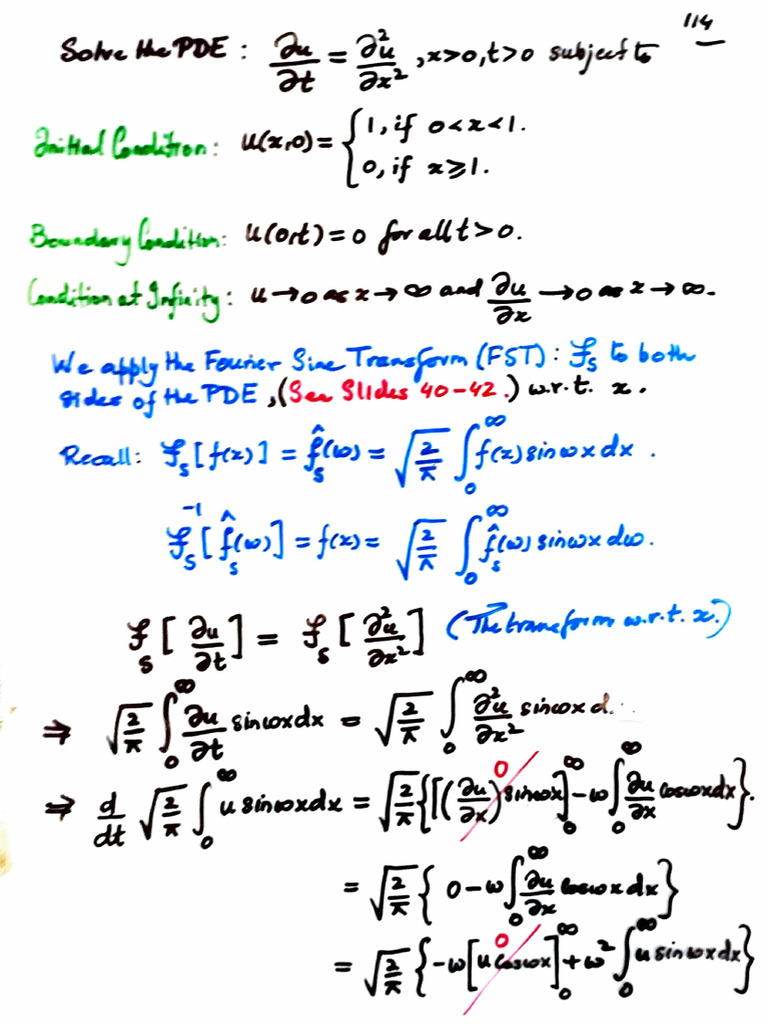 114
Solve the PDE : ∂u/∂t = ∂²u/∂x² , x>0, t>0 subject to
Initial Condition: u(x,0) = { 1, if 0<x<1.
0, if x⩾1.
Boundary Condition: u(0,t) = 0 for all t>0.
Condition at Infinity: u → 0 as x → ∞ and ∂u/∂x → 0 as x → ∞.
We apply the Fourier Sine Transform (FST) : ℱₛ to both
sides of the PDE, (See Slides 40-42.) w.r.t. x.
Recall: ℱₛ[f(x)] = f̂ₛ(ω) = √(2/π) ∫₀^∞ f(x) sinωx dx .
ℱₛ⁻¹[f̂ₛ(ω)] = f(x) = √(2/π) ∫₀^∞ f̂ₛ(ω) sinωx dω.
ℱₛ[∂u/∂t] = ℱₛ[∂²u/∂x²] (The transform w.r.t. x.)
⇒ √(2/π) ∫₀^∞ ∂u/∂t sinωx dx = √(2/π) ∫₀^∞ ∂²u/∂x² sinωx d
⇒ d/dt √(2/π) ∫₀^∞ u sinωx dx = √(2/π) {[(∂u/∂x) sinωx]₀^∞ 0 - ω ∫₀^∞ ∂u/∂x cosωx dx}.
= √(2/π) { 0 - ω ∫₀^∞ ∂u/∂x cosωx dx }
= √(2/π) { -ω [u cosωx]₀^∞ 0 + ω² ∫₀^∞ u sinωx dx }